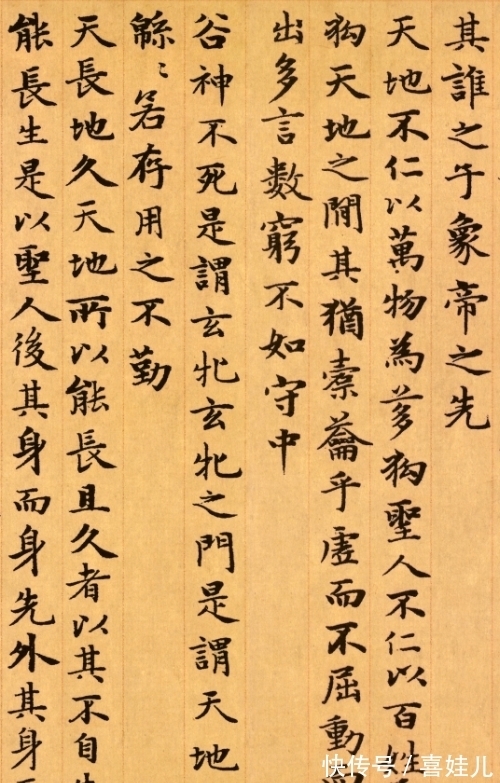 其誰之子象帝之先
天地不仁以萬物為芻狗聖人不仁以百姓
狗天地之閒其猶橐籥乎虛而不屈動
出多言數窮不如守中
谷神不死是謂玄牝玄牝之門是謂天地
緜〻若存用之不勤
天長地久天地所以能長且久者以其不自生
能長生是以聖人後其身而身先外其身
快传号/喜娃儿